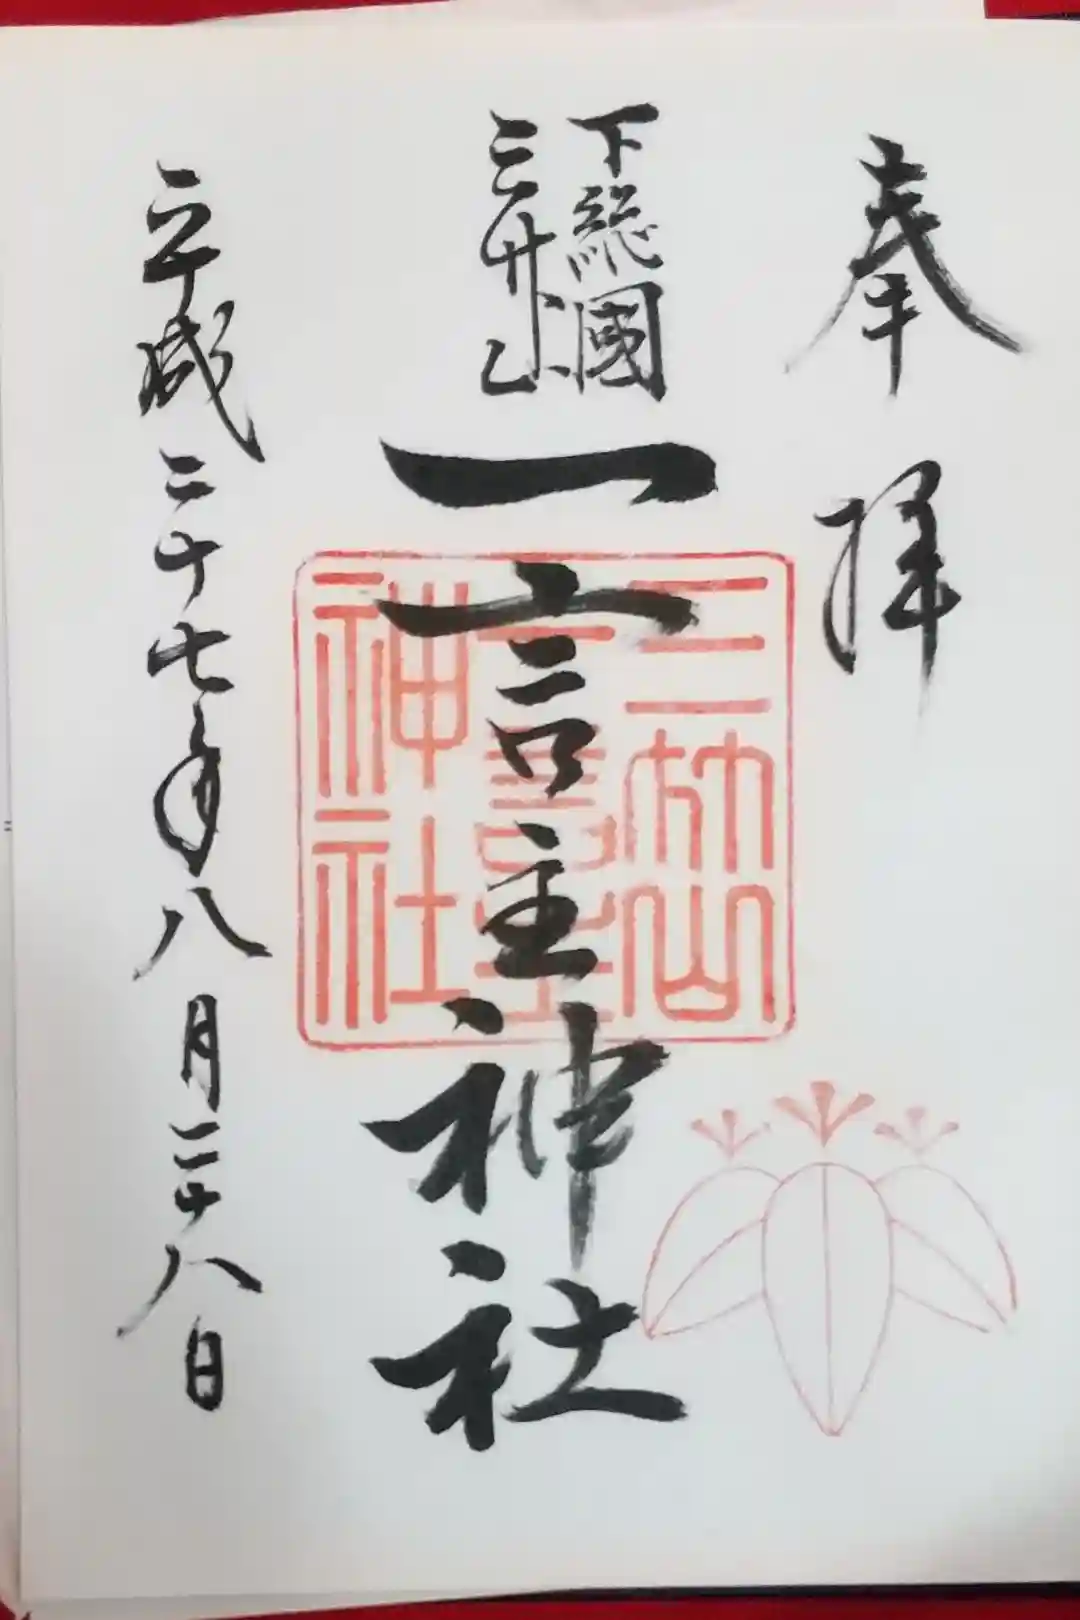 奉拝
下総國
三竹山
一言主神社
三竹山一言主神社
平成二十七年八月二十八日